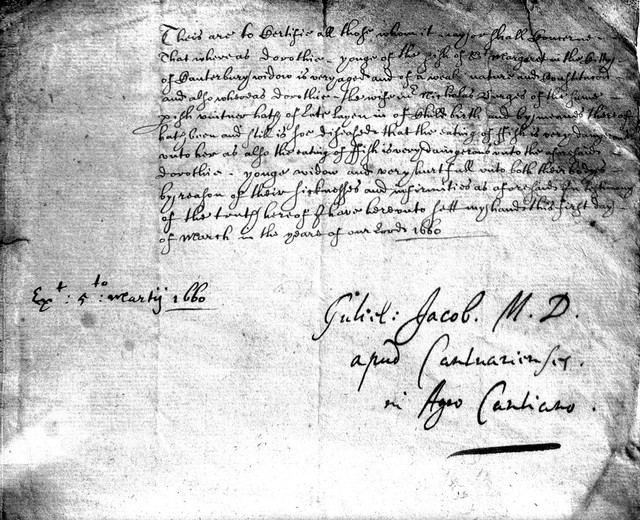 Theis are to Certifie all those whom it may or shall Concerne
That whereas dorothie yonge of the pish of St Margaret in the Citty
of Canterbury widow is very aged and of a weak nature and Constitucon
and also whereas dorothie the wife of Nicholas Burges of the same
pish vintner hath of late layen in of Child birth and by meanes thereof
hath been and still is soe diseased that the eating of ffish is very dangerous
unto her as also the eating of ffish is very dangerous unto the aforesaid
dorothie yonge widow and very hurtfull unto both their bodyes
by reason of their sicknesses and infirmities as aforesaid In testimony
of the truth hereof I have hereunto sett my hand this first day
of March in the yeare of our Lord 1660
Ext : 5to : Martij 1660
Guliel: Jacob. M. D.
apud Cantuarienses.
in Agro Cantiano.